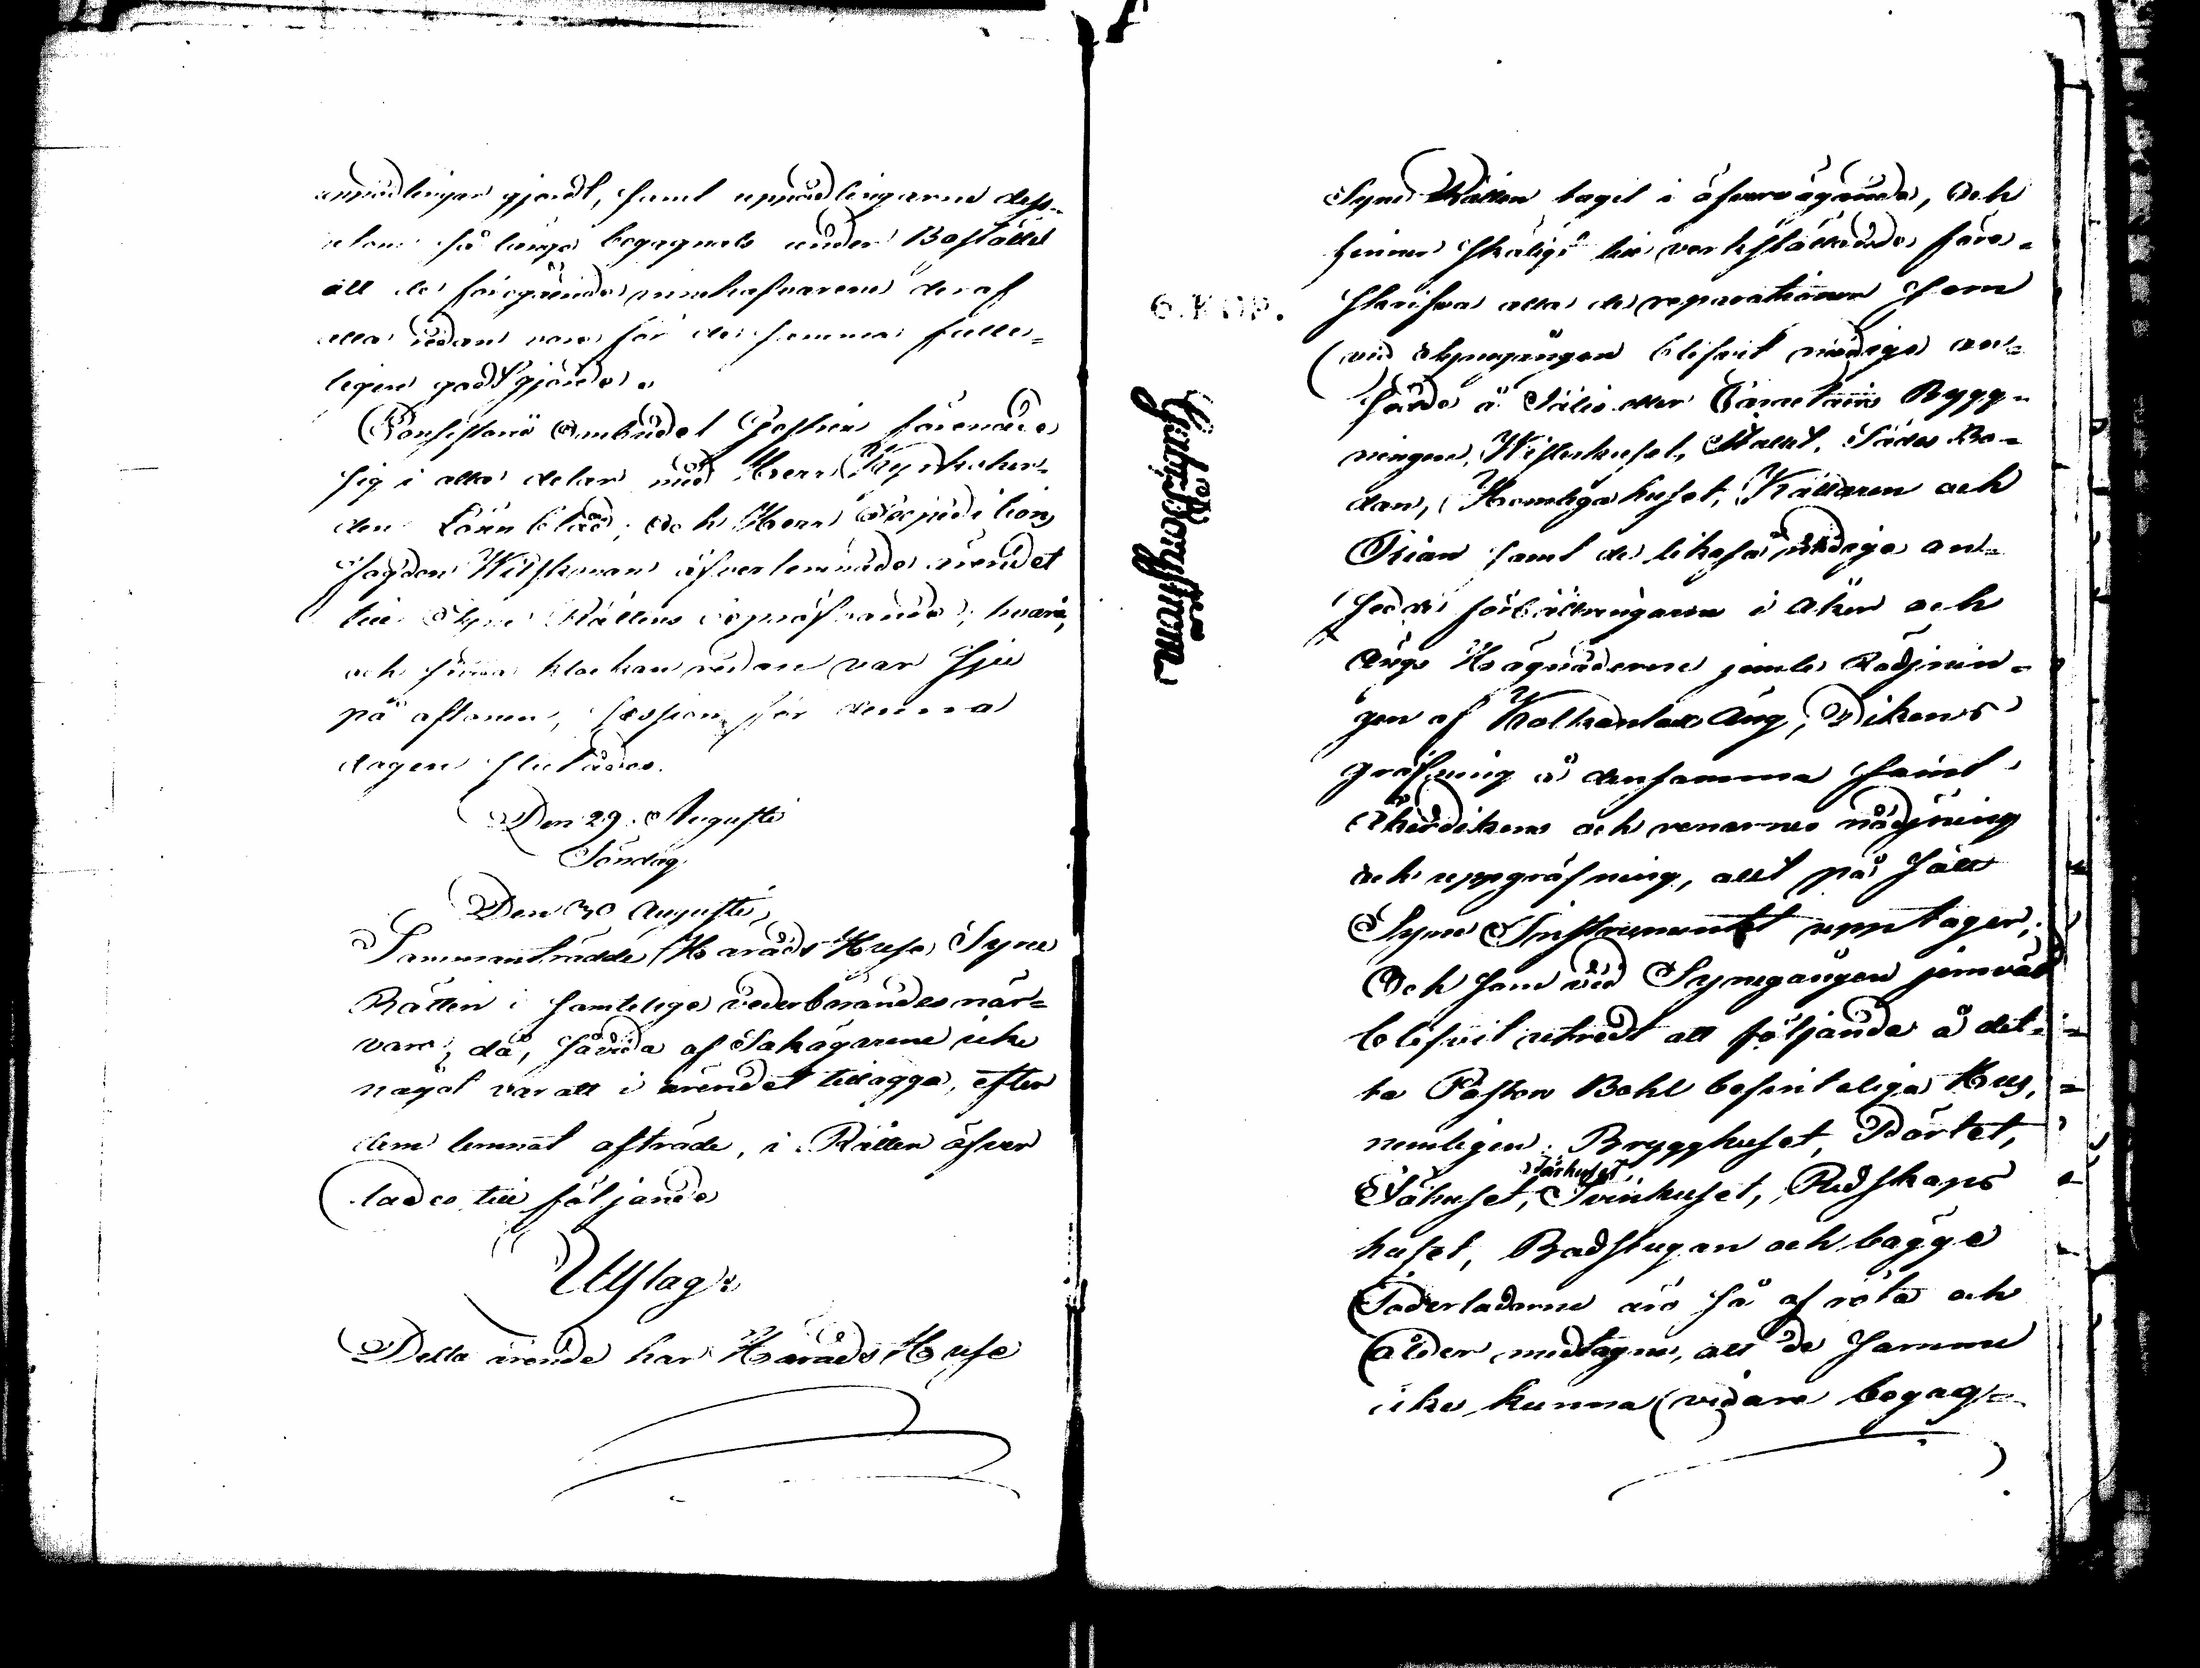 uppodlingar gjordt, samt uppodlingarne dess-
utom så länge begagnats under Bostället
att de föregående innehafvarene deraf
alla redan voro för de samma fulle-
ligen godtgjorde.
Consistorii Ombudet Prosten förenade
sig i alla delar med Herr Kyrkoher-
den Lönnblad; och Herr Expeditions
Fogden Wilskman öfverlemnade ärendet
till Syne Rättens ompröfvande; hvarå,
och sedan klockan redan var sju
på aftonen, session för denna
dagen slutades.
Den 29 Augusti
Söndag
Den 30 Augusti,
Sammanträdde Härads Husesyne
Rätten i samtelige vederbörandes när-
varo; då, såvida af Sakägarene icke
något var att i ärendet tillägga, efter
dem lemnat afträde, i Rätten öfver
lades till följande
Utslag:
Detta ärende har Härads Huse
Syne Rätten tagit i öfvervägande, och
finner skäligt till verkställande före-
skrifva alla de reparationer som
vid synegången blifvit nödige an-
sedde å Sätes eller Caracters Bygg-
ningen, Wisthuset, Stallet, Sädes Bo-
dan, Hemliga huset, Källaren och
Rian samt de likaså nödige an-
sedde förbättringarne i Åker och
Ängs Hägnaderne jemte Rödjnin-
gen af Äng, Dikens
gräfning å densamma samt
Åkerdikens och renarnes rödjning
och uppgräfning, allt på sätt
Syne Instrumentet upptager;
Och som vid Synegången jemväl
blifvit utredt att följande å det-
ta Pastors Bohl befinteliga Hus,
nemligen: Brygghuset, Pörtet,
Fähuset, Fårhuset, Svinhuset, Redskaps
huset, Badstugan och bägge
Foderladorne äro så af röta och
ålder medtagne, att de samme
icke kunna vidare begag-
6. KOP.